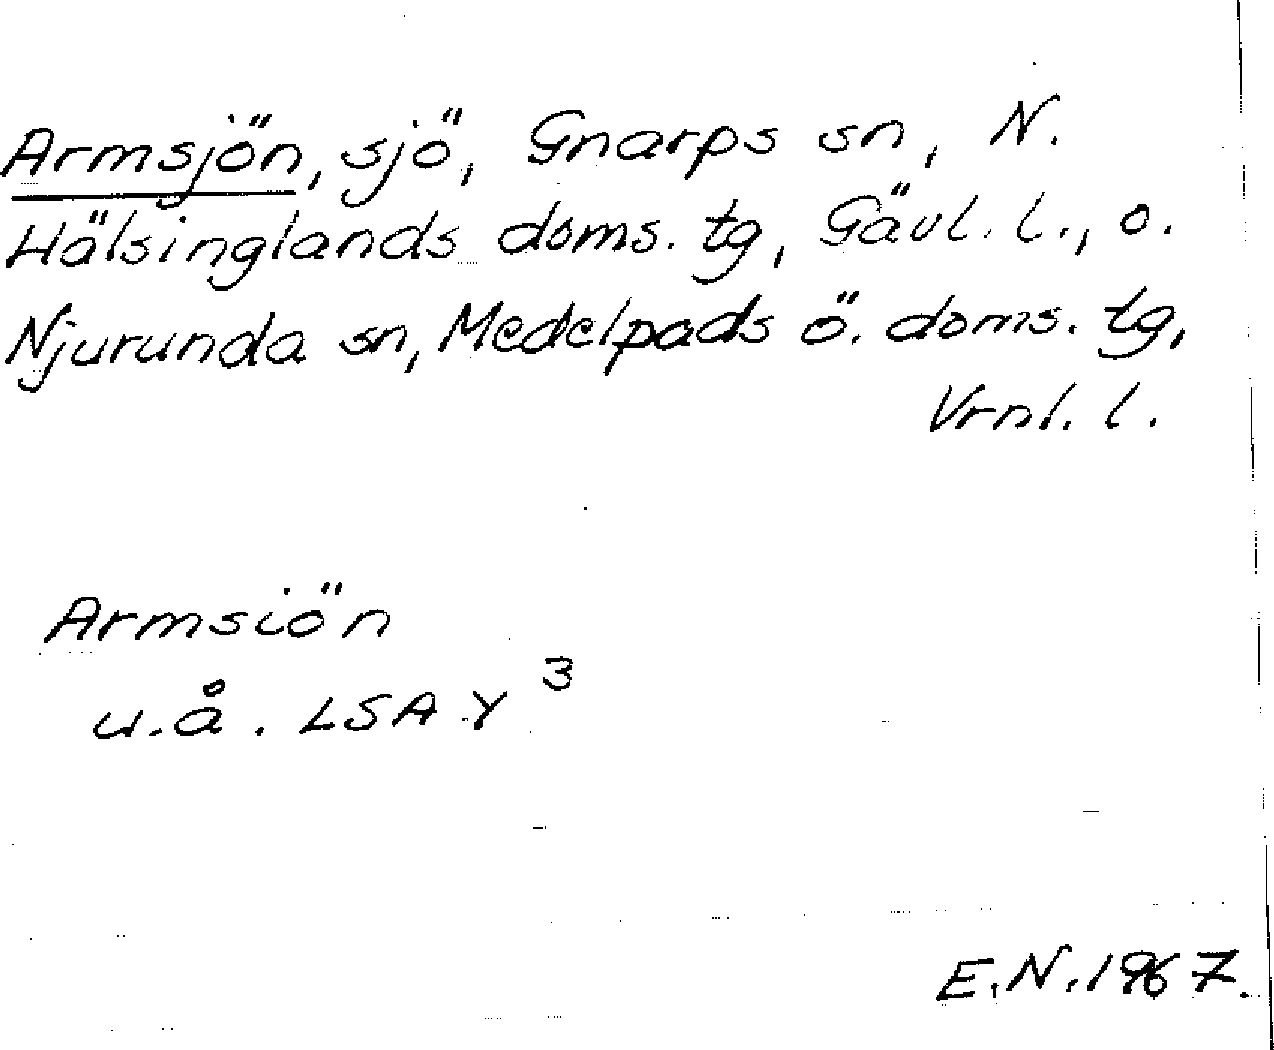 Armsjön, sjö, Gnarps sn, N.
Hälsinglands doms. tg, Gävl. l., o.
Njurunda sn, Medelpads ö. doms. tg,
Vrnl. l.
Armsiön
u.å. LSA Y 3
E.N. 1967.